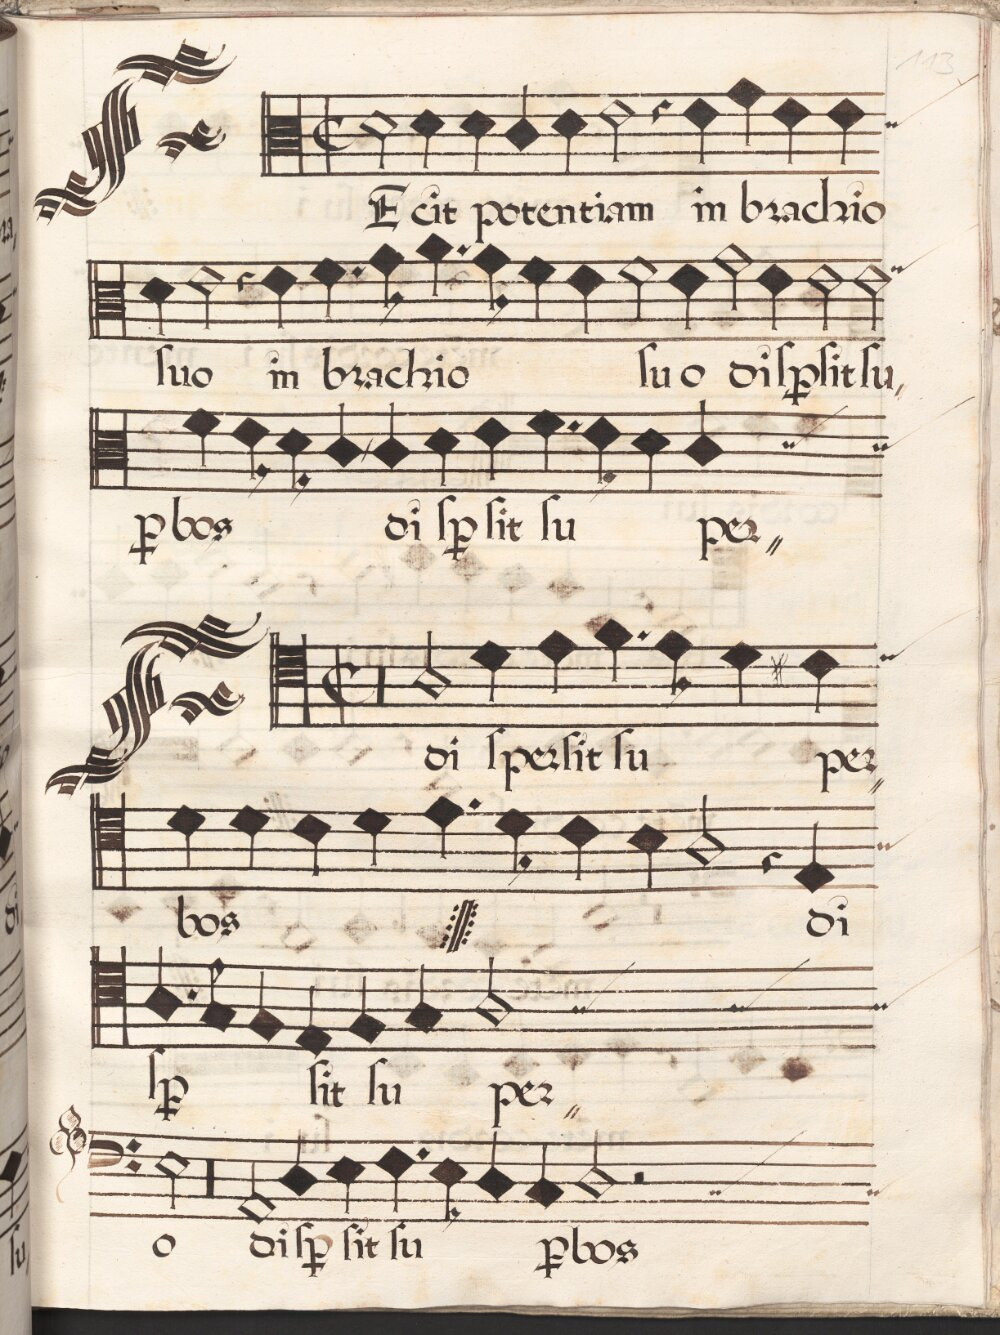 113
F Ecit potentiam in brachio
suo in brachio suo disꝑsit su,
ꝑbos di sꝑ sit su per,,
F di spersit su per,,
bos di
sꝑ sit su per,,
o di sꝑ sit su ꝑbos